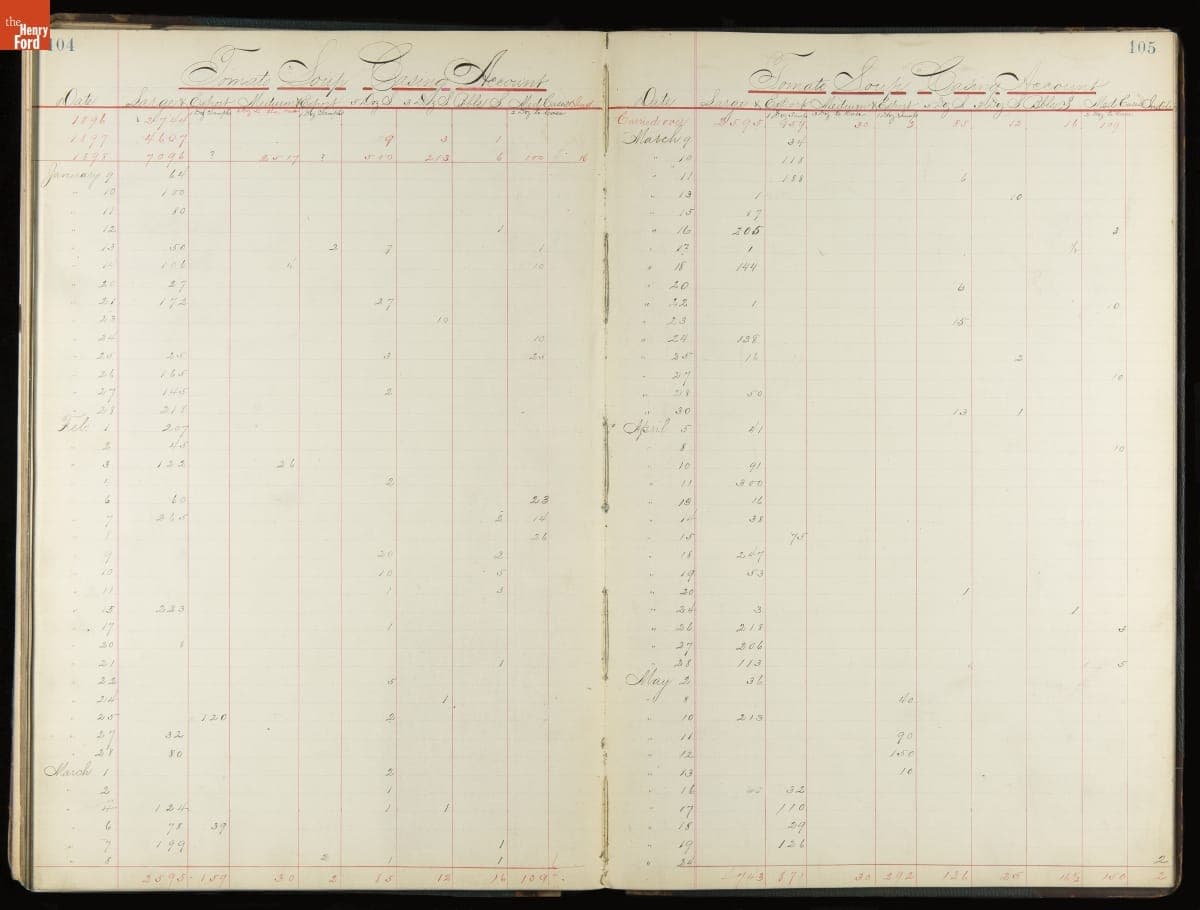 the Henry Ford
104
Tomato Soup Casing Account
Date Large Export Medium Export
1896
1897 4607 9 3 1
1898 7096 ? 2517 ? 500 213 6 100 16
January 9 64
" 10 100
" 11 80
" 12 1
" 13 50 2 7 1
106 4 10
" 20 27
" 21 172 27
" 23 10
" 24 10
" 25 25 3 25
" 26 165
" 27 145 2
" 28 218
Feb 1 207
" 2 45
" 3 122 26
2
" 6 60 23
" 7 265 2 14
26
" 9 20 2
" 10 10 5
" 11 1 3
" 15 223
" 17 1
" 20 8
" 21 1
" 22 5
" 24 1
" 25 120 2
" 27 32
" 28 80
March 1 2
" 2 1
" 4 124 1 1
" 6 78 39
" 7 199 1
" 8 2 1 1
2595 159 30 2 85 12 16 109
105
Tomato Soup Casing Account
Date Large Export Medium Export
Carried over 2595 30 2 85 12 16 109
March 9 34
" 10 118
" 11 188 6
" 13 1 10
" 15 17
" 16 205 3
" 17 1 ½
" 18 144
" 20 6
" 22 1 10
" 23 15
" 24 138
" 25 16 2
" 27 10
" 28 50
" 30 13 1
April 5 41
" 8 10
" 10 91
" 11 300
" 13 16
" 14 38
" 15 75
" 18 247
" 19 53
" 20 1
" 24 3 1
" 26 218 3
" 27 206
" 28 113 5
May 2 36
" 8 40
" 10 213
" 11 90
" 12 150
" 13 10
" 16 32
" 17 110
" 18 29
" 19 126
" 24 2
743 871 30 292 126 25 16½ 150 2